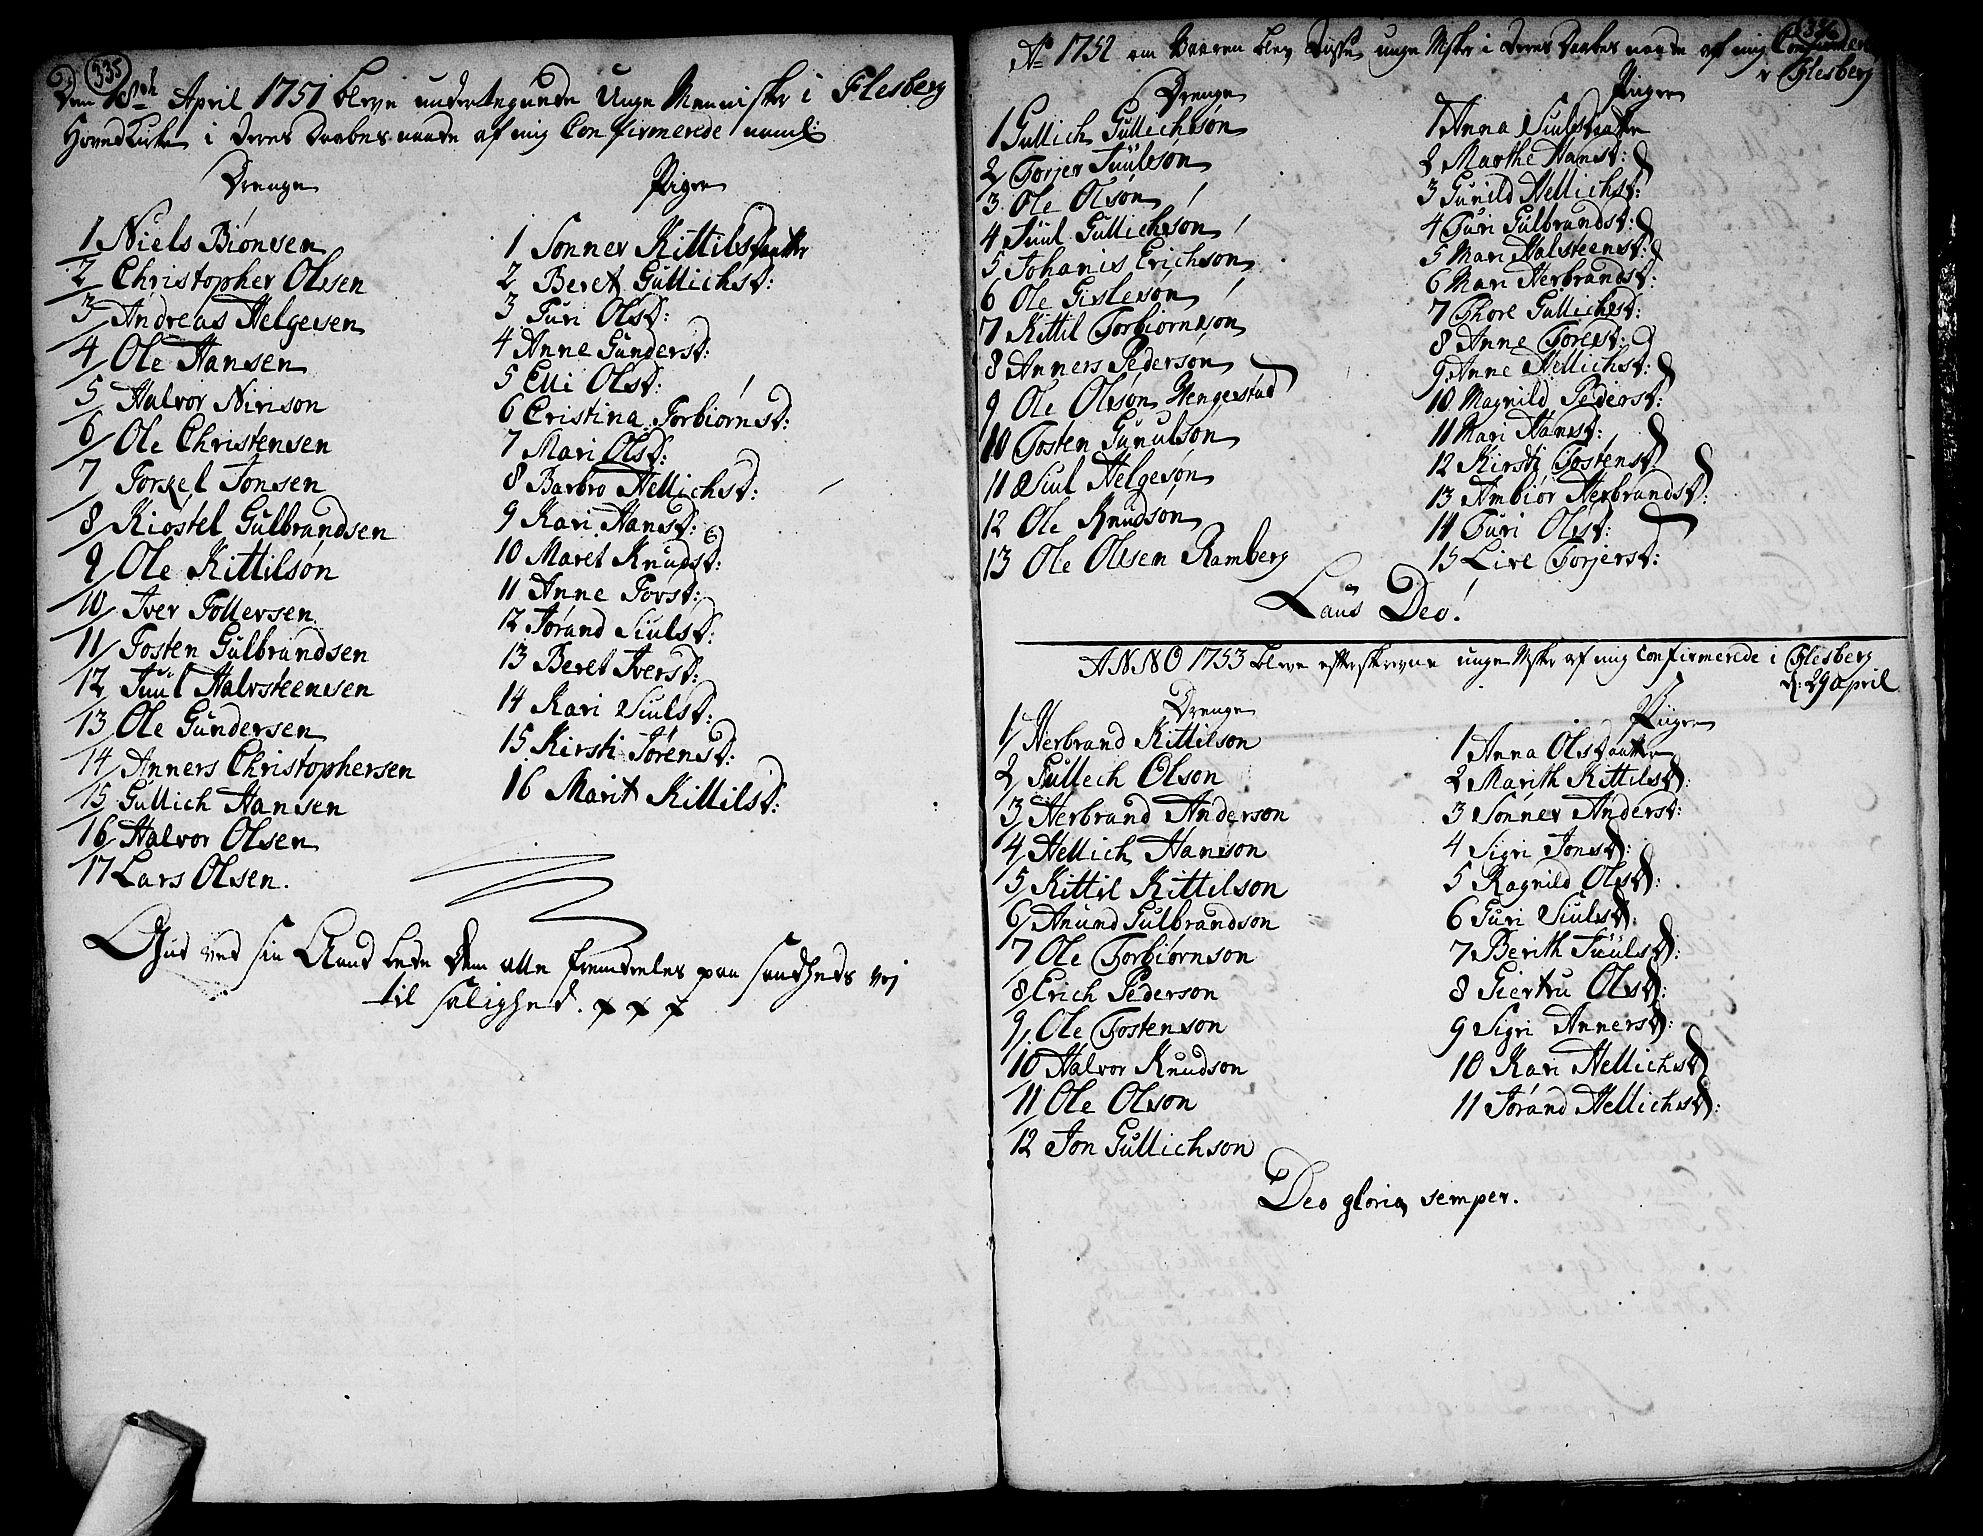 335
Den 18de April 1751 bleve undertegnede Unge Mennisker i Flesberg
Hoved Kirke i deres Daabes naade af mig Confirmerede navnl:
Drenge
1 Niels Biönsen
2 Christopher Olesen
3 Andreas Helgesen
4 Ole Hansen
5 Halvor Nirison
6 Ole Christensen
7 Torkel Jonsen
8 Kiöstel Gulbrandsen
9 Ole Kittilsön
10 Iver Tollevsen
11 Tosten Gulbrandsen
12 Juul Halvsteensen
13 Ole Gundersen
14 Anners Christophersen
15 Gullich Hansen
16 Halvor Olsen
17 Lars Olsen.
Piger
1 Sönnev Kittilsdaatter
2 Beret Gullichsd:
3 Turi Olsd:
4 Anne Gundersd:
5 Elli Olsd:
6 Cristina Torbiörnsd:
7 Mari Olsd:
8 Barbro Hellichsd:
9 Kari Hansd:
10 Maret Knudsd:
11 Anne Torsd:
12 Jörand Siulsd:
13 Beret Iversd:
14 Kari Siulsd:
15 Kirsti Jörensd:
16 Marit Kittilsd:
Gud ved sin Aand lede dem alle fremdeles paa Sandheds vej
til salighed. x x x
336
Ao 1752 om Vaaren blev disse unge Msker i deres Daabes naade af mig Confirmeret
i Flesberg
Drenge
1 Gullich Gullichsön
2 Torjer Juulsön
3 Ole Olsön
4 Juul Gullichsön
5 Johanis Erichsön
6 Ole Gislesön
7 Kittil Torbiörnsön
8 Anners Pedersön
9 Ole Olsön Hengestad
10 Tosten Gunulsön
11 Siul Helgesön
12 Ole Knudsön
13 Ole Olesen Ramberg
Piiger
1 Anna Siulsdaatter
2 Marthe Hansd:
3 Gunild Hellichsd:
4 Turi Gulbrandsd:
5 Mari Halsteensd:
6 Mari Herbrandsd:
7 Thore Gullichsd:
8 Anne Toresd:
9 Anne Hellichsd:
10 Magnild Pedersd:
11 Mari Hansd:
12 Kirsti Tostensd:
13 Ambiör Herbrandsd:
14 Turi Olsd:
15 Live Torjersd:
Laus Deo!
ANNO 1753 bleve efterskrevne unge Msker af mig Confirmerede i Flesberg
d: 29 April
Drenge
1 Herbrand Kittilson
2 Gullech Olson
3 Herbrand Anderson
4 Hellich Hanson
5 Kittil Kittilson
6 Anund Gulbrandson
7 Ole Torbiörnson
8 Erich Pederson
9 Ole Tostenson
10 Halvor Knudson
11 Ole Olson
12 Jon Gullichson
Piiger
1 Anna Olsdaatter
2 Marith Kittilsd:
3 Sönnev Andersd:
4 Sigri Jonsd:
5 Ragnild Olsd:
6 Guri Siulsd:
7 Berith Juulsd:
8 Giertru Olsd:
9 Sigri Annersd:
10 Kari Hellichsd
11 Jörand Hellichsd:
Deo gloria semper.